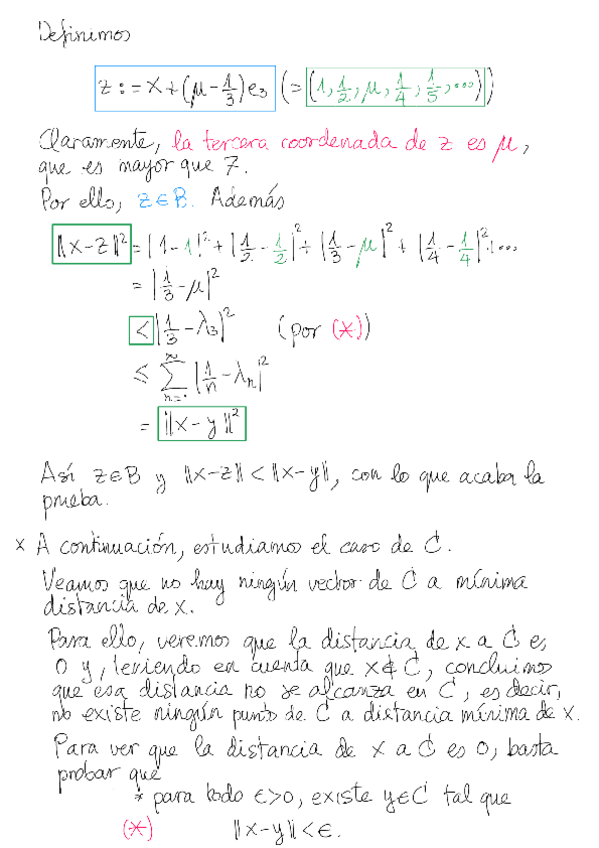 Definimos
z := x + (μ - 1/3)e₃ (= (1, 1/2, μ, 1/4, 1/5, ...))
Claramente, la tercera coordenada de z es μ,
que es mayor que 7.
Por ello, z∈B. Además
‖x-z‖² = |1-1|² + |1/2 - 1/2|² + |1/3 - μ|² + |1/4 - 1/4|² + ...
= |1/3 - μ|²
< |1/3 - λ₃|² (por (*))
≤ ∑_{n=1}^∞ |1/n - λₙ|²
= ‖x-y‖²
Así z∈B y ‖x-z‖ < ‖x-y‖, con lo que acaba la
prueba.
× A continuación, estudiamos el caso de C.
Veamos que no hay ningún vector de C a mínima
distancia de x.
Para ello, veremos que la distancia de x a C es
0 y, teniendo en cuenta que x∉C, concluimos
que esa distancia no se alcanza en C, es decir,
no existe ningún punto de C a distancia mínima de x.
Para ver que la distancia de x a C es 0, basta
probar que
* para todo ϵ>0, existe y∈C tal que
(*) ‖x-y‖<ϵ.